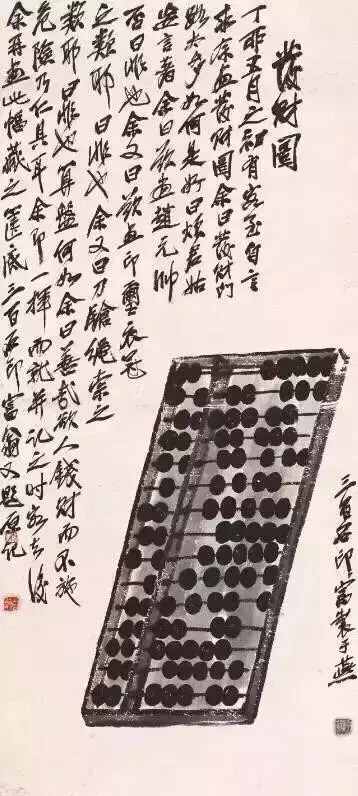 發財圖
丁卯五月之初有客至自言
求余畫發財圖余曰發財門
路太多如何是好曰煩君姑
妄言著余曰欲畫趙元帥
否曰非也余又曰欲畫印璽衣冠
之類耶曰非也余又曰刀鎗繩索之
類耶曰非也算盤何如余曰善哉欲人錢財而不施
危險乃仁具耳余即一揮而就并記之時客去後
余再畫此幅藏之篋底三百石印富翁又題原記
三百石印富于燕